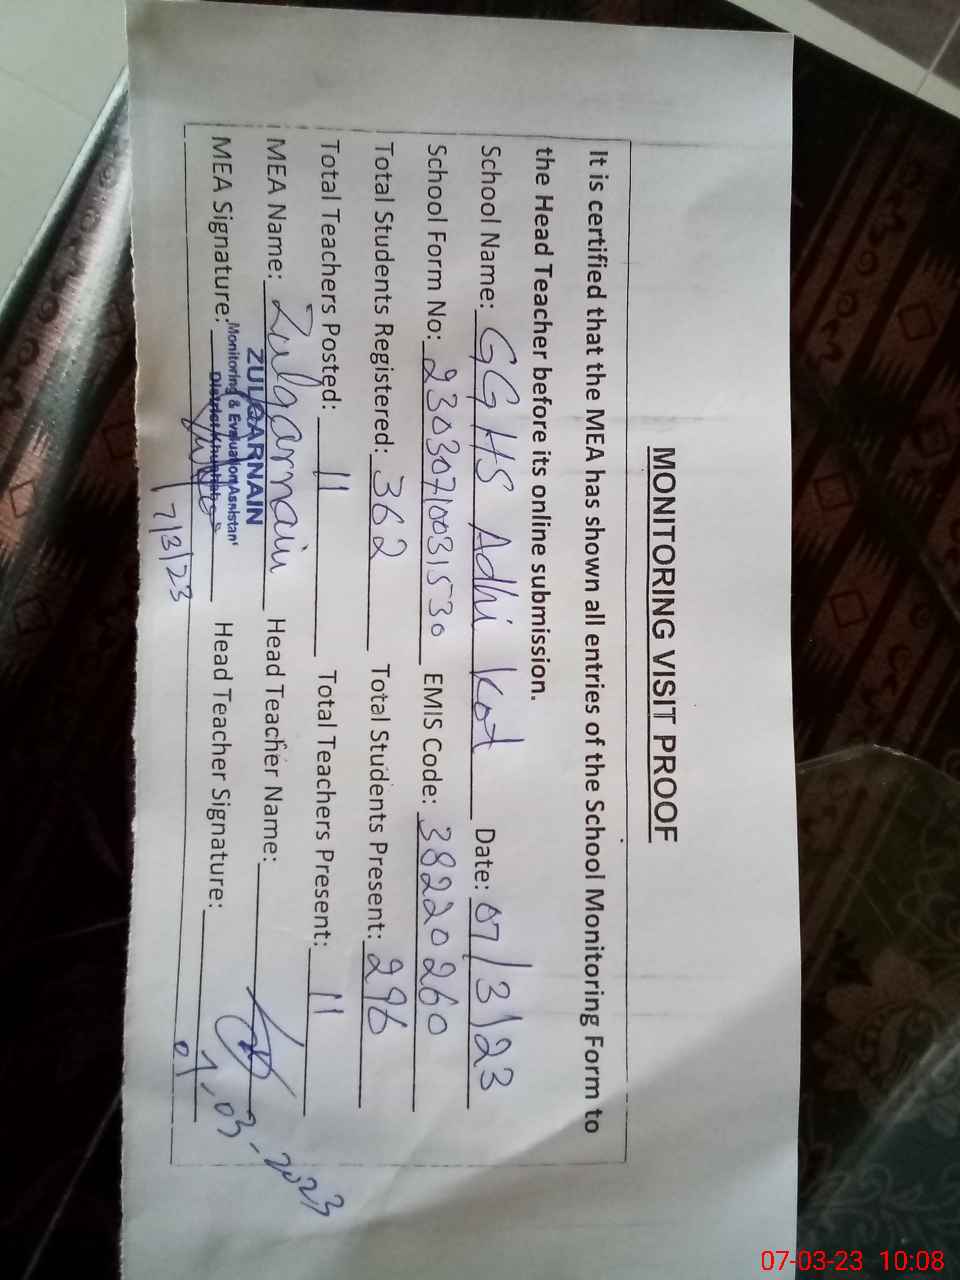 MONITORING VISIT PROOF
It is certified that the MEA has shown all entries of the School Monitoring Form to
the Head Teacher before its online submission.
School Name: GGHS Adhi Kot Date: 07/3/23
School Form No: 23030710031530 EMIS Code: 38220260
Total Students Registered: 362 Total Students Present: 296
Total Teachers Posted: 11 Total Teachers Present: 11
MEA Name: Zulqarnain Head Teacher Name:
ZULQARNAIN
Monitoring & Evaluation Assistan
District Khushab
MEA Signature: Head Teacher Signature:
7/3/23
07.03-2023
07-03-23 10:08